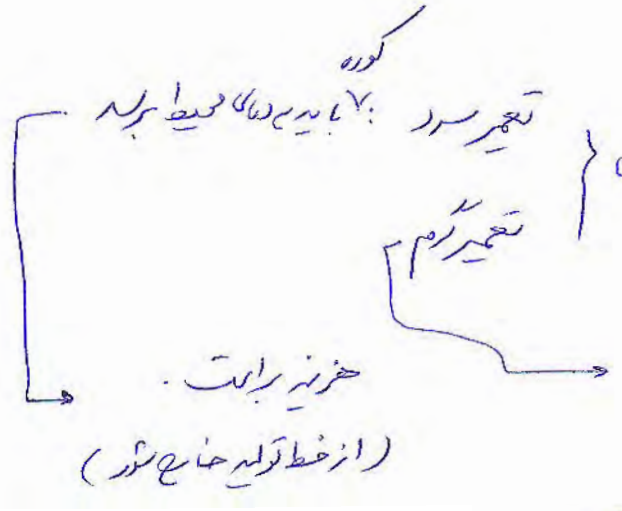 کوره
تعمیر سرد : باید به دمای محیط برسد
تعمیر گرم
هزینه بر است .
( از خط تولید خارج شود )